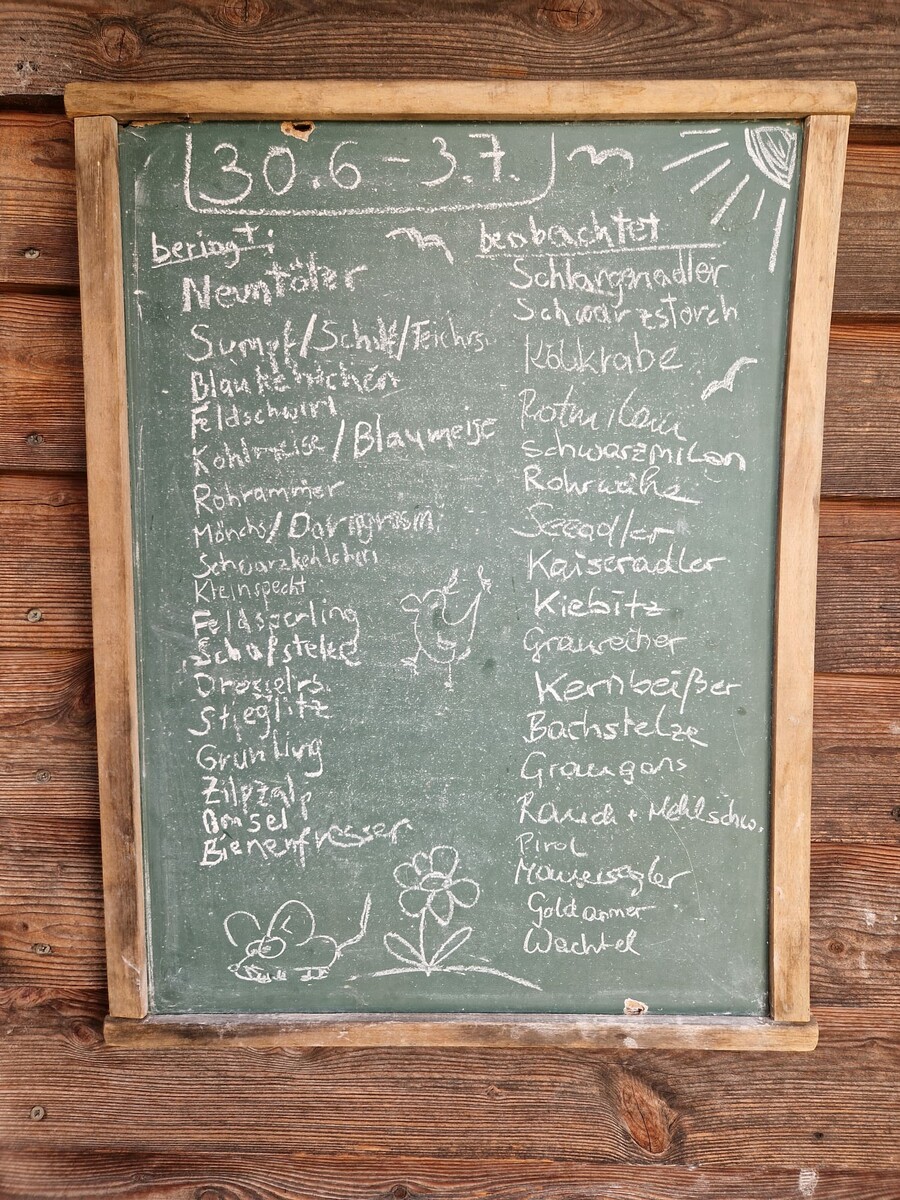 30.6 - 3.7.
beringt:
Neuntöter
Sumpf/Schilf/Teichrs.
Blaukehlchen
Feldschwirl
Kohlmeise/Blaumeise
Rohrammer
Mönchs/Dorngrasm.
Schwarzkehlchen
Kleinspecht
Feldsperling
Schafstelze
Drosselrs.
Stieglitz
Grünling
Zilpzalp
Amsel
Bienenfresser
beobachtet
Schlangenadler
Schwarzstorch
Kolkrabe
Rotmilan
Schwarzmilan
Rohrweihe
Seeadler
Kaiseradler
Kiebitz
Graureiher
Kernbeißer
Bachstelze
Graugans
Rauch + Mehlschw.
Pirol
Mauersegler
Goldammer
Wachtel